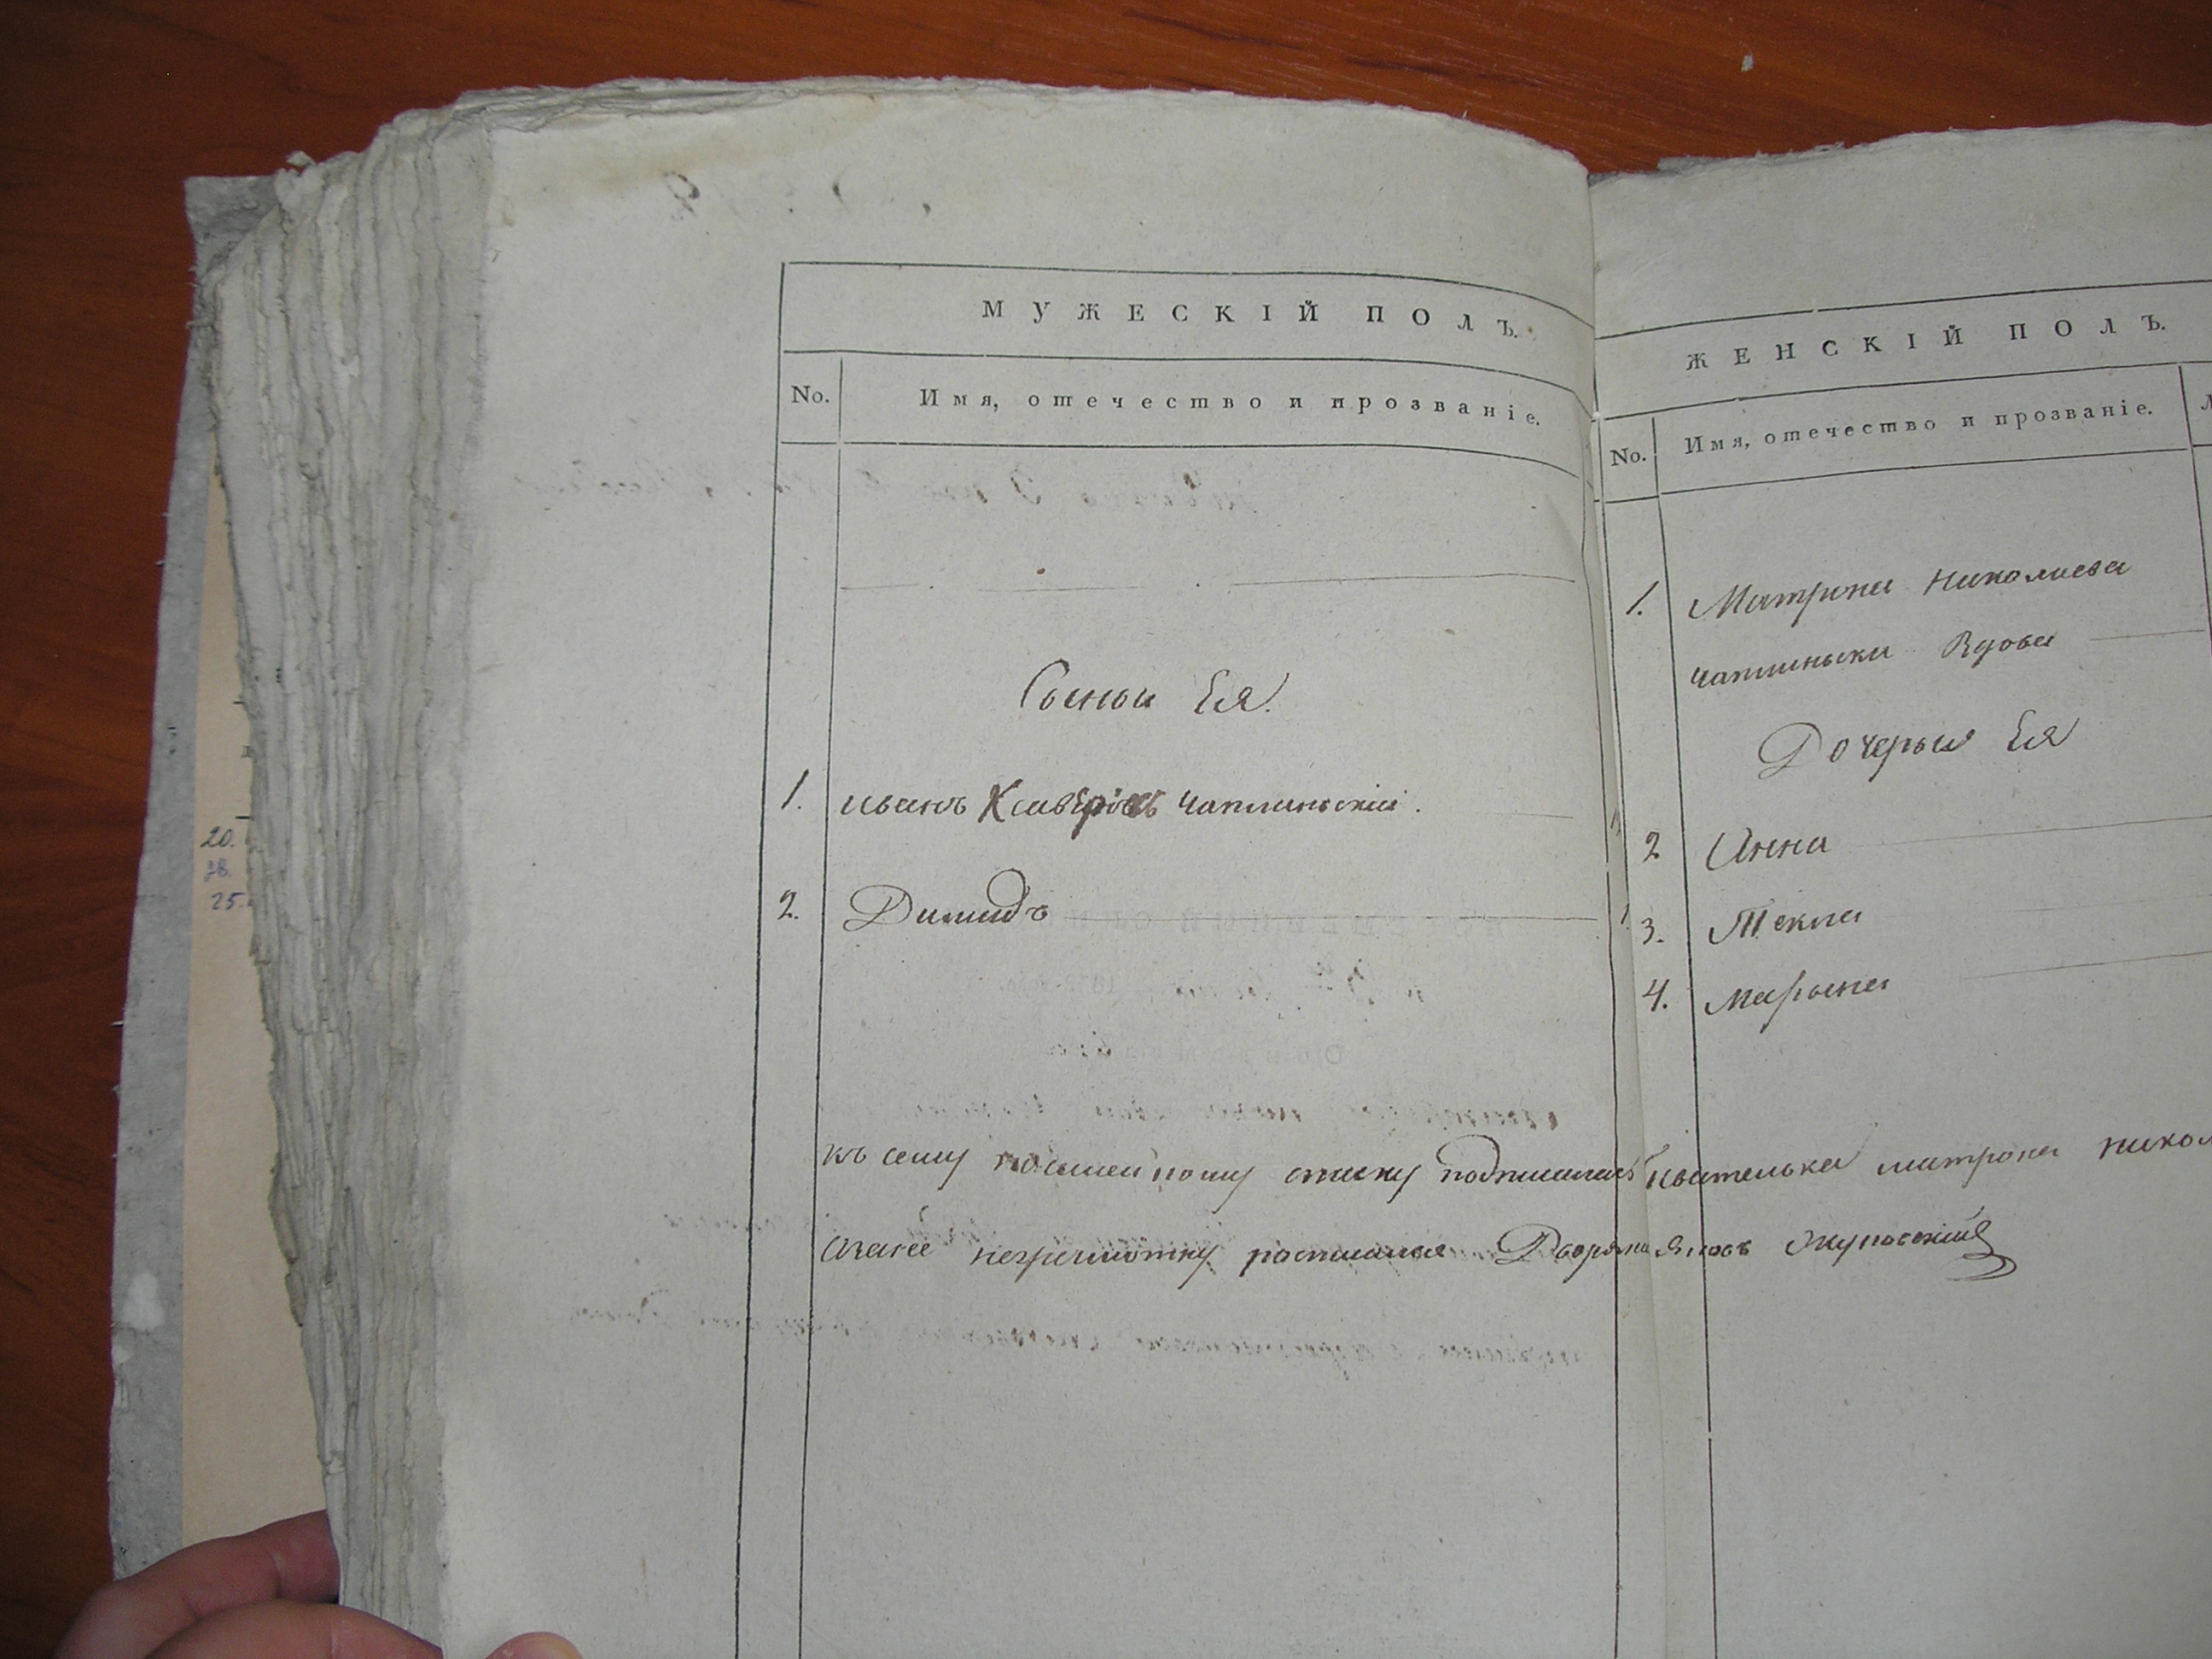 МУЖЕСКІЙ ПОЛЪ.
No.
Имя, отечество и прозваніе.
Сыновья Ея.
1. иванъ Ксаверіевъ Чаплиньскій.
2. Димидъ
ЖЕНСКІЙ ПОЛЪ.
No.
Имя, отечество и прозваніе.
1. Матрона Николаева
чаплиньска Вдова
Дочерья Ея
2 Анна
3. Текла
4. марьяна
къ сему посемейному списку подписалась матрона никол
азанеё неграмотну росписался Дворянинъ
20.
25.